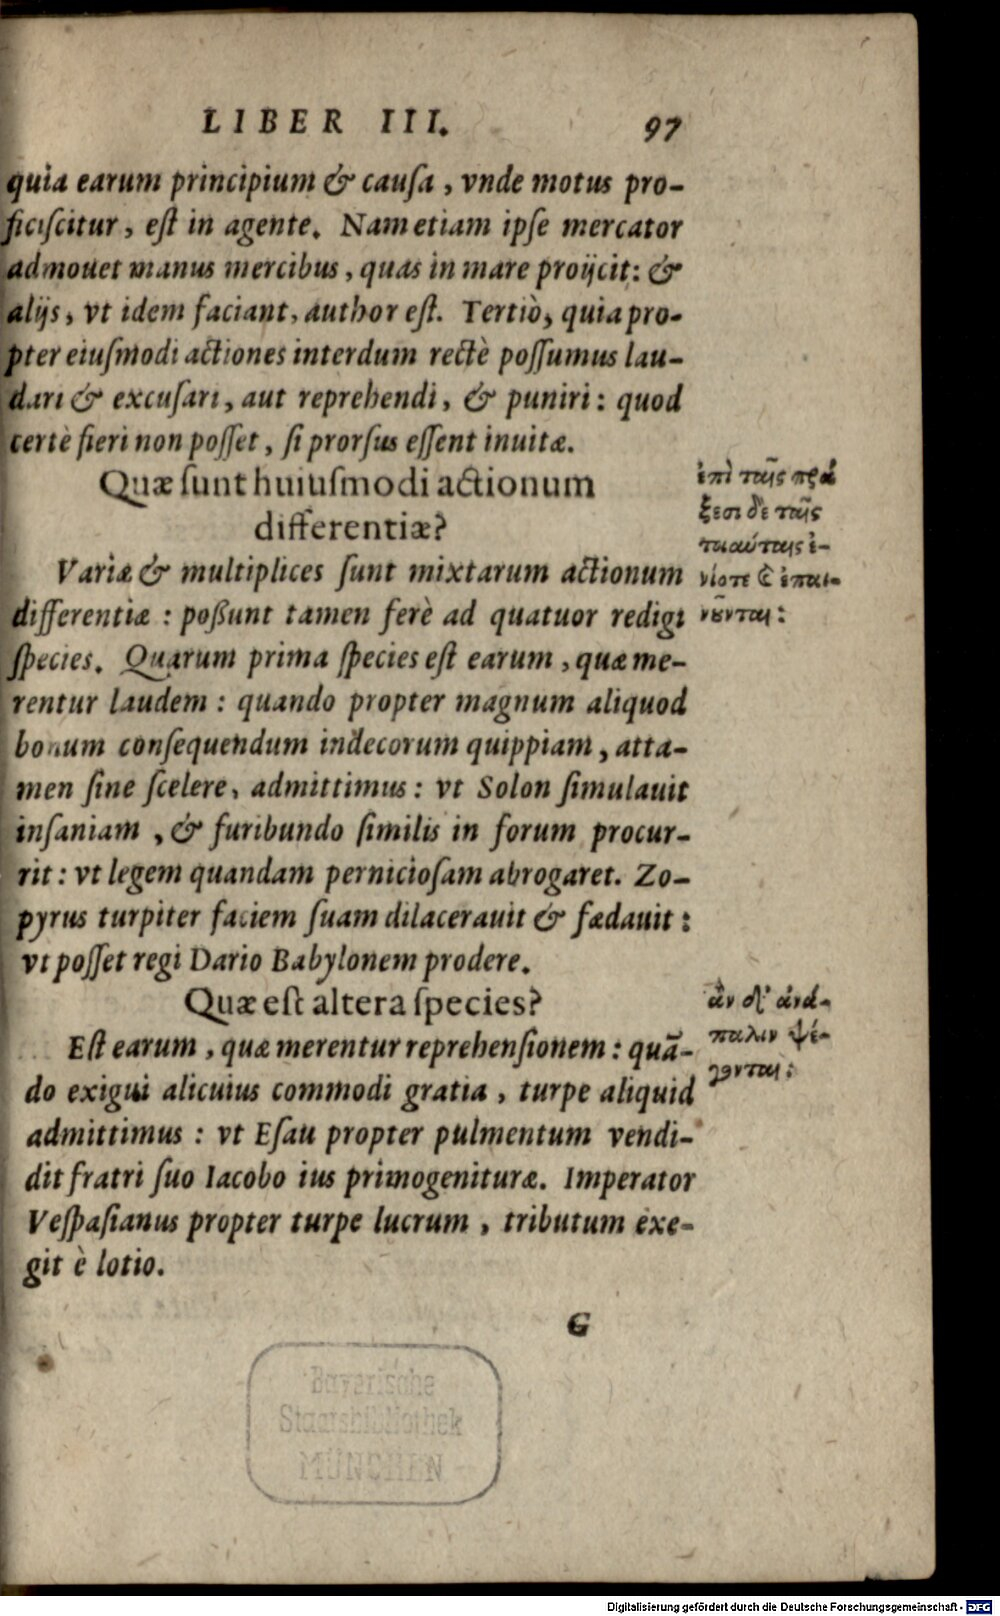 LIBER III. 97
quia earum principium & cauſa, vnde motus pro-
ficiſcitur, eſt in agente. Nam etiam ipſe mercator
admouet manus mercibus, quas in mare proijcit: &
alijs, vt idem faciant, author eſt. Tertiò, quia pro-
pter eiuſmodi actiones interdum rectè poſſumus lau-
dari & excuſari, aut reprehendi, & puniri: quod
certè fieri non poſſet, ſi prorſus eſſent inuitæ.
Quæ ſunt huiuſmodi actionum
differentiæ?
ἐπὶ ταῖς πρά
ξεσι δὲ ταῖς
τοιαύταις ἐ-
νίοτε ϗ̀ ἐπαι-
νοῦνται:
Variæ & multiplices ſunt mixtarum actionum
differentiæ: poßunt tamen ferè ad quatuor redigi
ſpecies. Quarum prima ſpecies eſt earum, quæ me-
rentur laudem: quando propter magnum aliquod
bonum conſequendum indecorum quippiam, atta-
men ſine ſcelere, admittimus: vt Solon ſimulauit
inſaniam, & furibundo ſimilis in forum procur-
rit: vt legem quandam pernicioſam abrogaret. Zo-
pyrus turpiter faciem ſuam dilacerauit & fædauit:
vt poſſet regi Dario Babylonem prodere.
Quæ eſt altera ſpecies?
ἂν δ' ἀνά-
παλιν ψέ-
γονται:
Eſt earum, quæ merentur reprehenſionem: quã-
do exigui alicuius commodi gratia, turpe aliquid
admittimus: vt Eſau propter pulmentum vendi-
dit fratri ſuo Iacobo ius primogenituræ. Imperator
Veſpaſianus propter turpe lucrum, tributum exe-
git è lotio.
G
Bayerische
Staatsbibliothek
MÜNCHEN
Digitalisierung gefördert durch die Deutsche Forschungsgemeinschaft - DFG